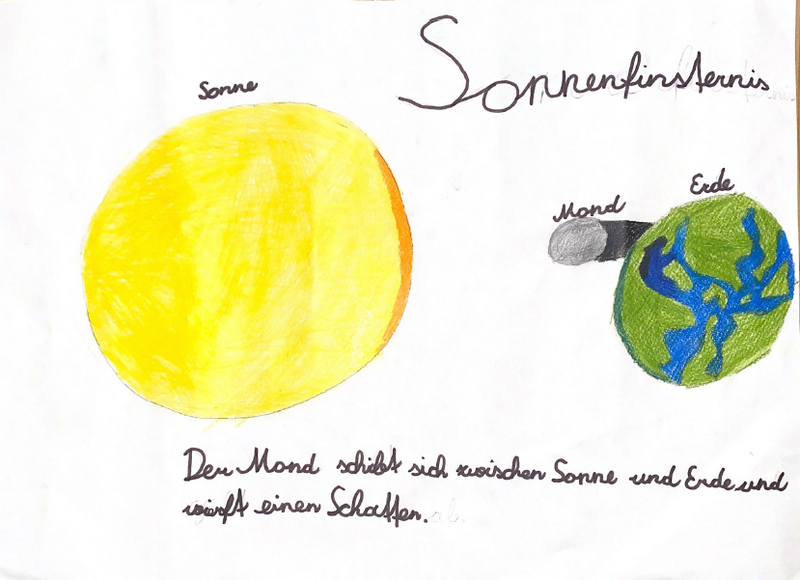 Sonnenfinsternis
Sonne
Mond
Erde
Der Mond schibt sich zwischen Sonne und Erde und
wirft einen Schatten. ab.